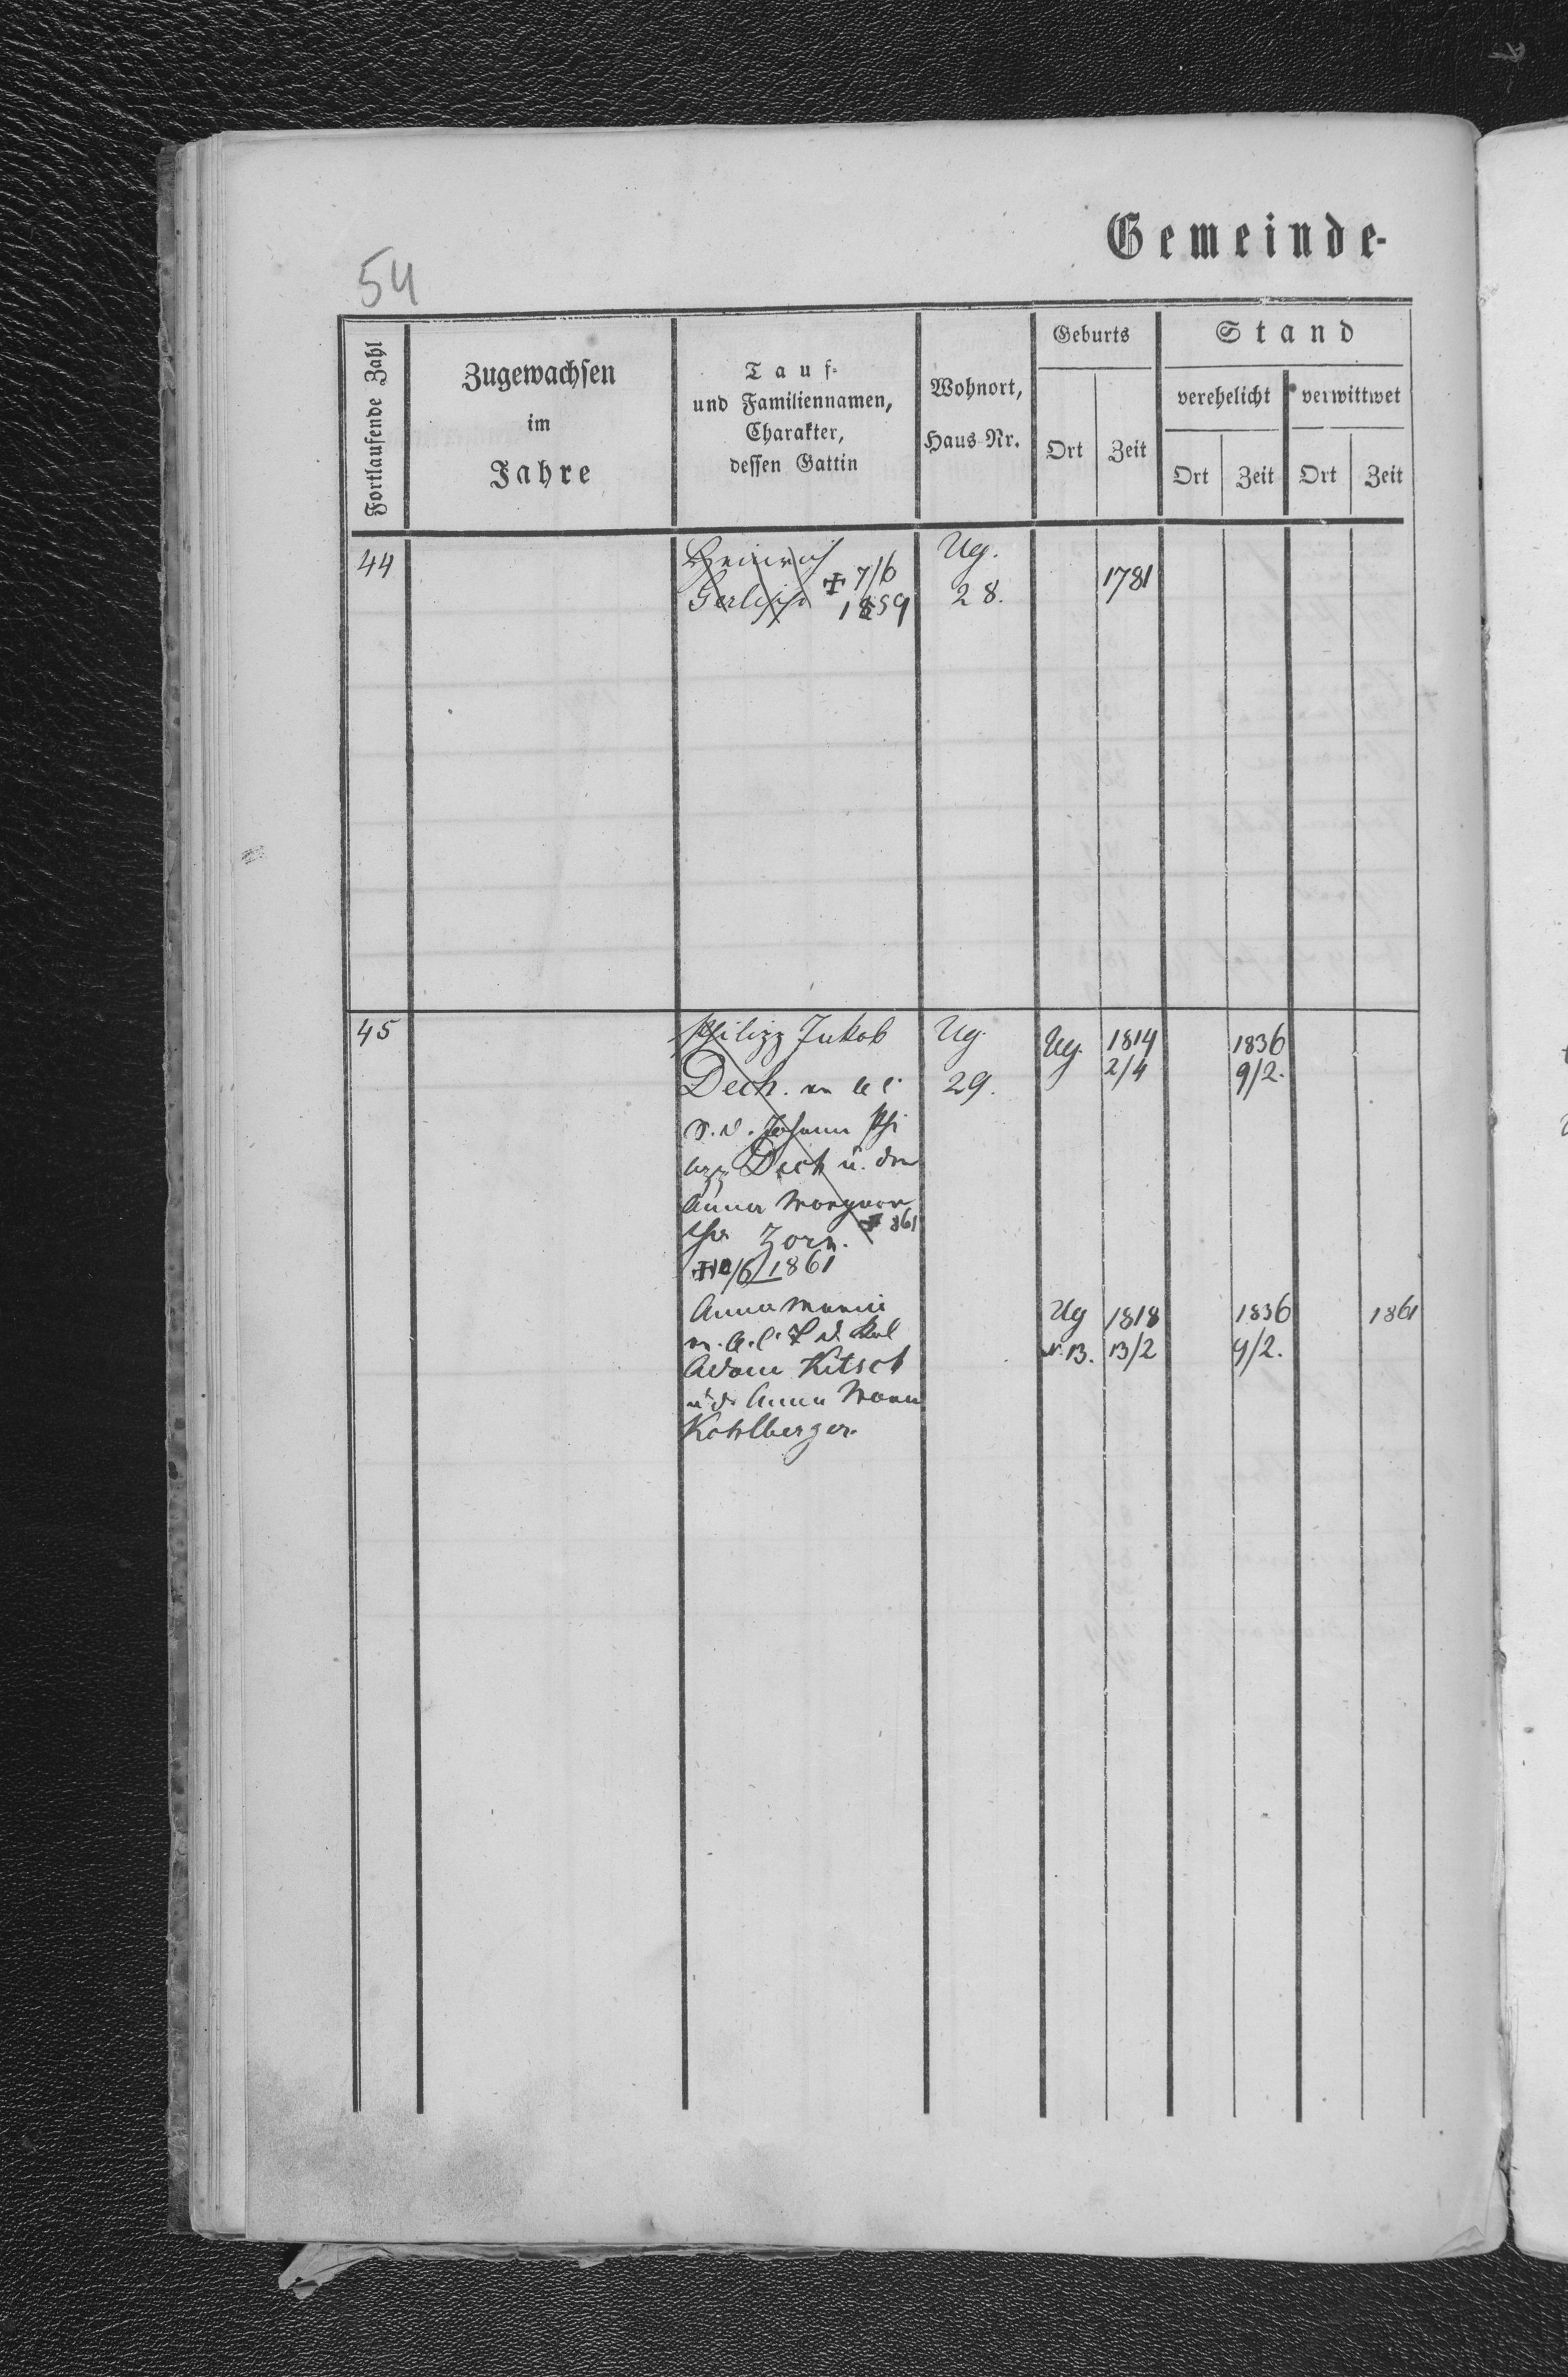 54
Gemeinde-
Fortlaufende Zahl
Zugewachsen
im
Jahre
Tauf-
und Familiennamen,
Charakter,
dessen Gattin
Wohnort,
Haus-Nr.
Geburts
Ort
Zeit
Stand
verehelicht
verwittwet
Ort
Zeit
Ort
Zeit
44
Heinrich
✝ 7/6
1859
Ug.
28.
1781
45
Philipp Jakob
Dech.
S. d. Johann Phi
lipp Dech u. der
Anna Margare
tha Zorn. ✝ 861
✝ 10/6 1861
Ug.
29.
Ug.
1814
2/4
1836
9/2.
Anna Maria
Adam Kitsch
u d. Anna Maria
Kohlberger.
Ug
N. 13.
1818
13/2
1836
9/2.
1861